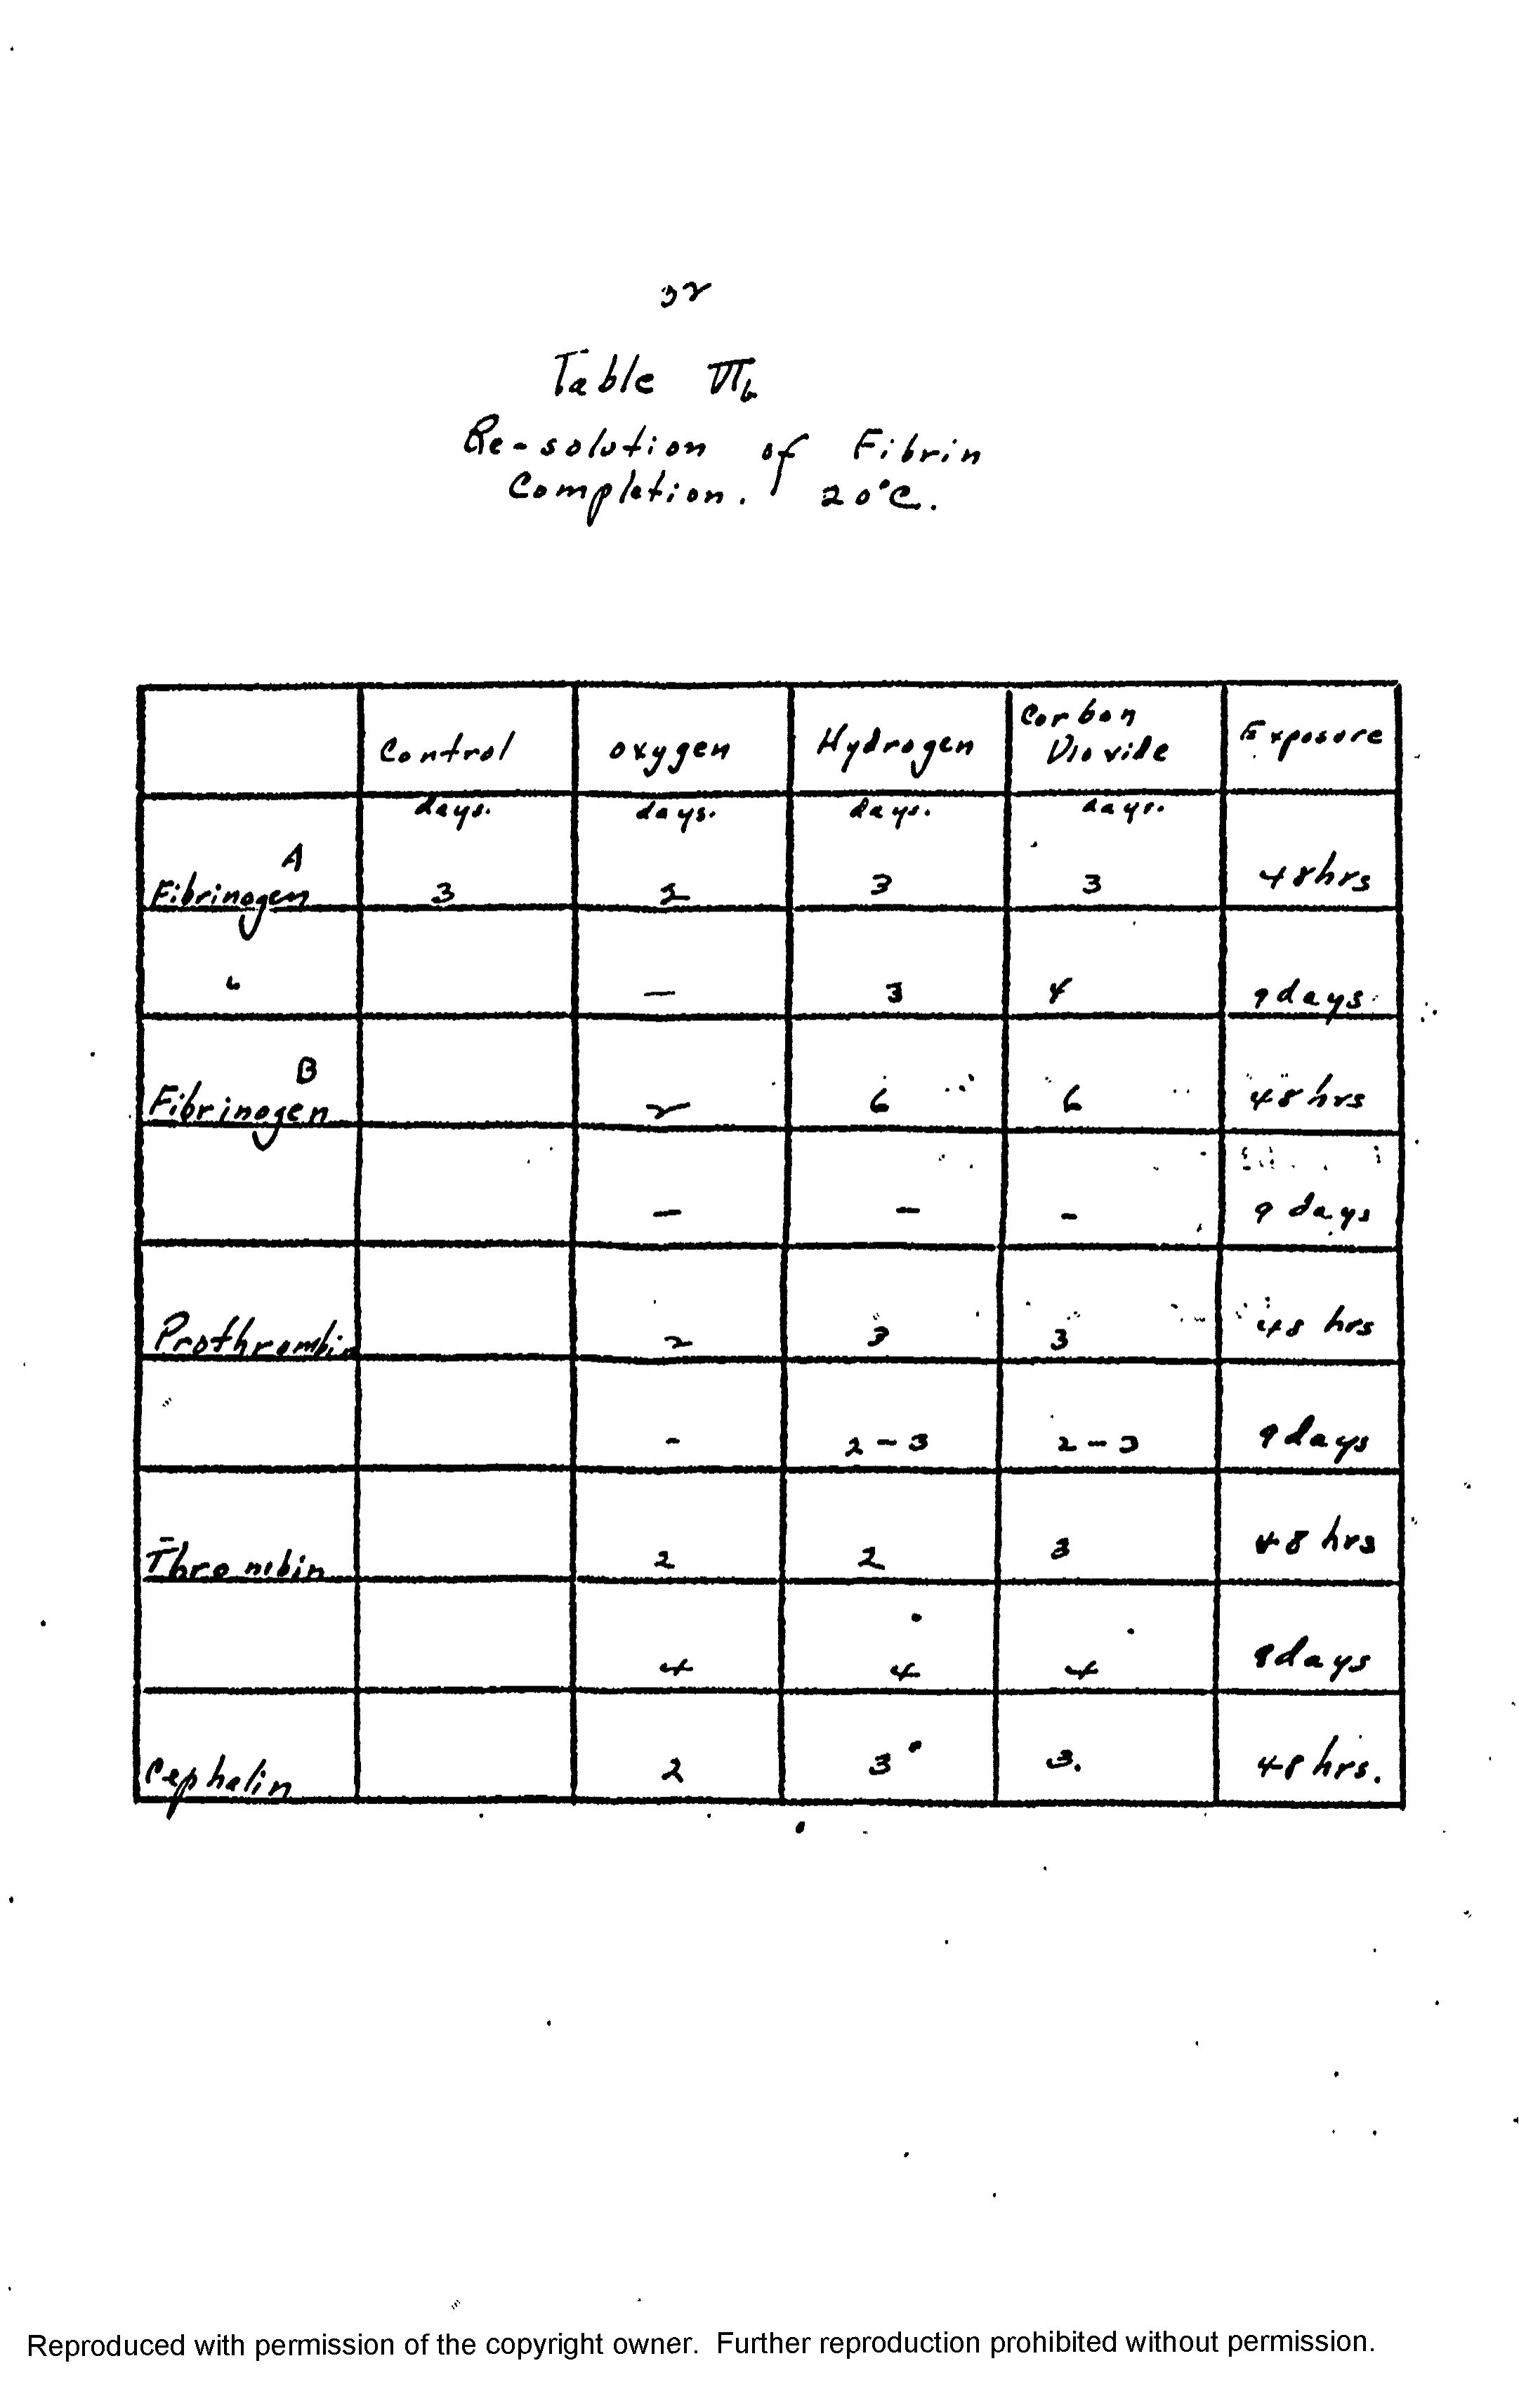 32
Table VIb
Re-solution of Fibrin
Completion. 20°C.
Control oxygen Hydrogen Carbon Dioxide Exposure
days. days. days. days.
Fibrinogen A 3 2 3 3 48hrs
" — 3 4 9days
Fibrinogen B 2 6 6 48hrs
— — - 9 days
Prothrombin 2 3 3 48 hrs
- 2-3 2-3 9days
Thrombin 2 2 3 48 hrs
4 4 4 9days
Cephalin 2 3 3. 48 hrs.
Reproduced with permission of the copyright owner. Further reproduction prohibited without permission.